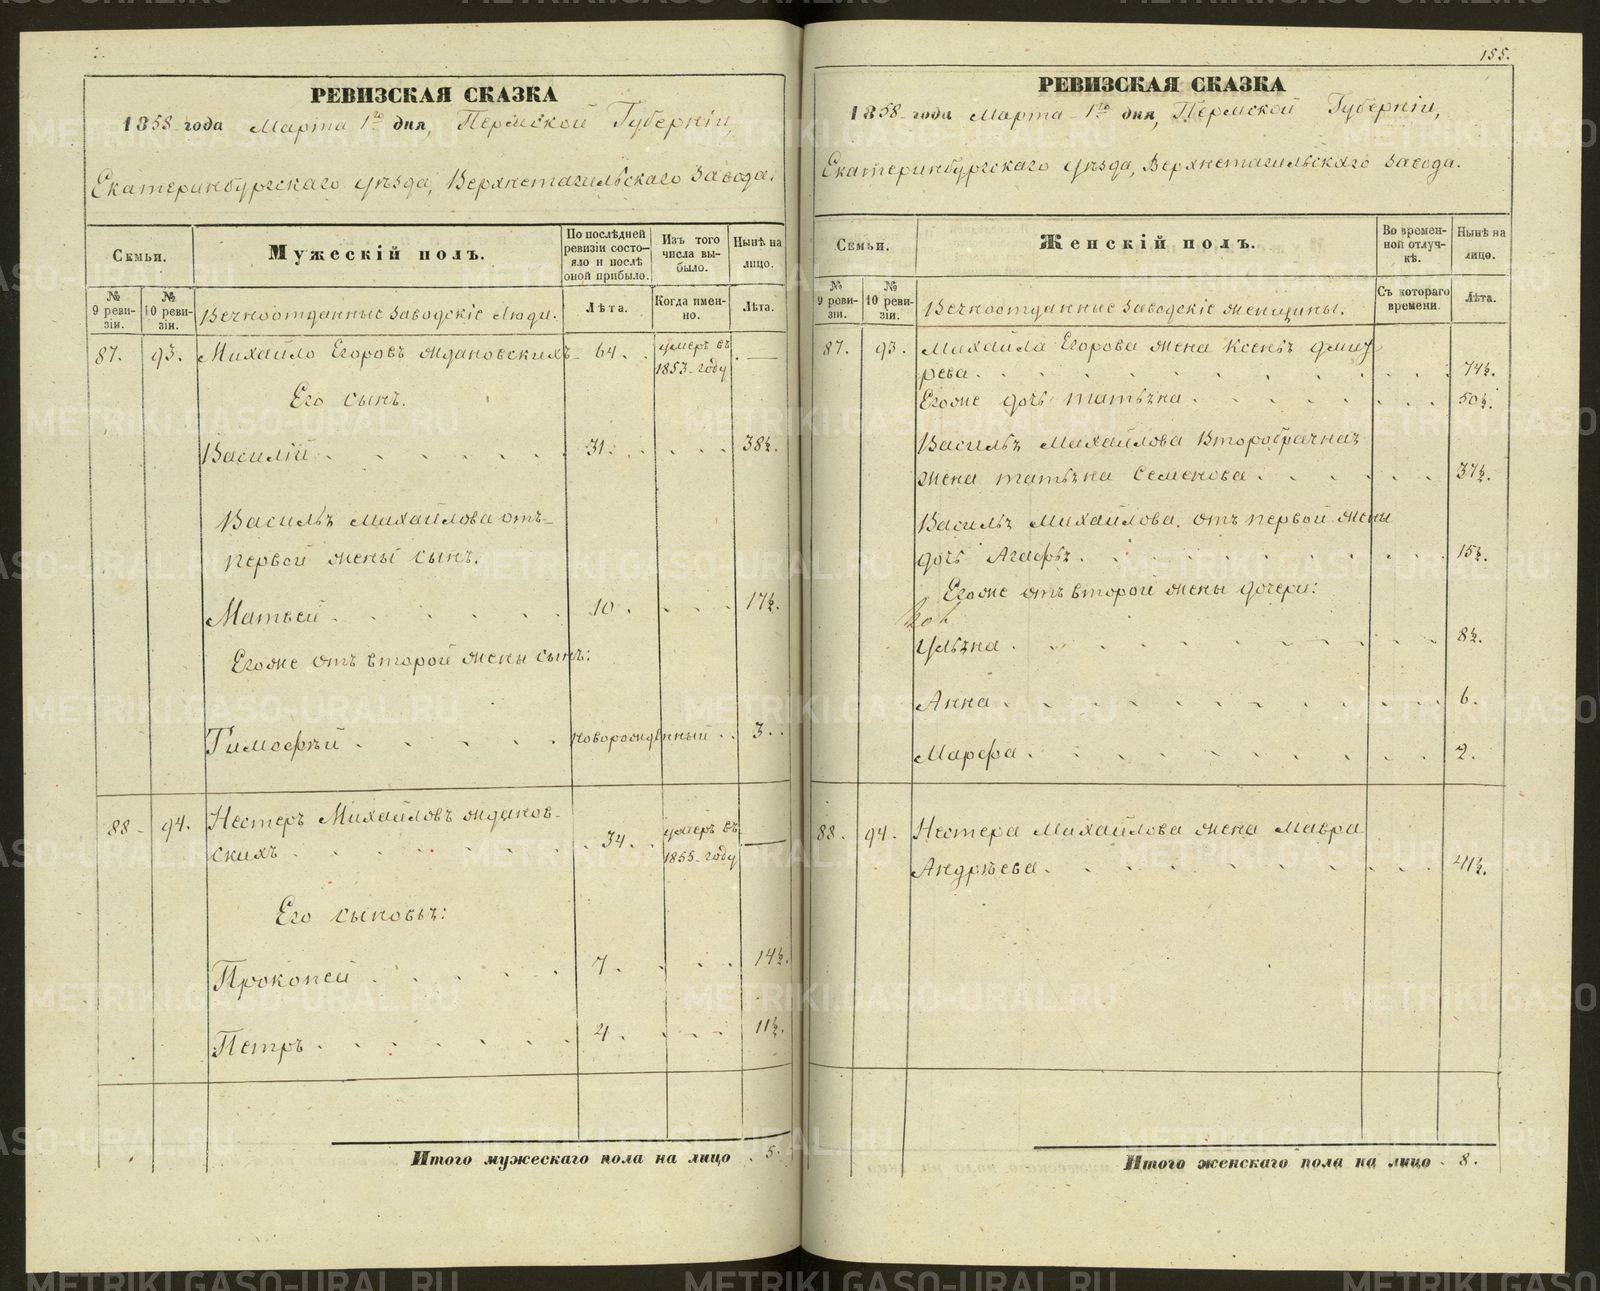 РЕВИЗСКАЯ СКАЗКА
1858 года Марта 1го дня, Пермской Губерніи,
Екатеринбургскаго уѣзда, Верхнетагильскаго завода.
Семьи.
Мужескій полъ.
По послѣдней ревизіи состояло и послѣ оной прибыло.
Изъ того числа выбыло.
Нынѣ на лицо.
№ 9 ревизіи.
№ 10 ревизіи.
Вечноотданные Заводскіе Люди.
Лѣта.
Когда именно.
Лѣта.
87. 93. Михайло Егоровъ Ждановскихъ 64. умеръ въ 1853 году —
Его сынъ.
Василій 31. 38½.
Василья Михайлова отъ
первой жены сынъ.
Матвей 10. 17½.
Егоже отъ второй жены сынъ:
Тимофей новорожденный 3.
88 94. Нестеръ Михайловъ Жданов-
скихъ 34. умеръ въ 1855 году —
Его сыновья:
Прокопей 7. 14½.
Петръ 4. 11½.
Итого мужескаго пола на лицо 5.
155.
РЕВИЗСКАЯ СКАЗКА
1858 года Марта 1го дня, Пермской Губерніи,
Екатеринбургскаго уѣзда, Верхнетагильскаго завода.
Семьи.
Женскій полъ.
Во временной отлучкѣ.
Нынѣ на лицо.
№ 9 ревизіи.
№ 10 ревизіи.
Вечноотданные Заводскіе женщины.
Съ котораго времени.
Лѣта.
87. 93. Михайла Егорова жена Ксенья Дмит
рева 74½.
Егоже дочь татьяна 50½.
Василья Михайлова Второбрачная
жена татьяна Семенова 37½.
Василья Михайлова, отъ первой жены
дочь Агафья 15½.
Егоже отъ второй жены дочери:
Ульяна 8½.
Анна 6.
Марфа 2.
88. 94. Нестера Михайлова жена Мавра
Андрѣева 41½.
Итого женскаго пола на лицо 8.
METRIKI.GASO-URAL.RU